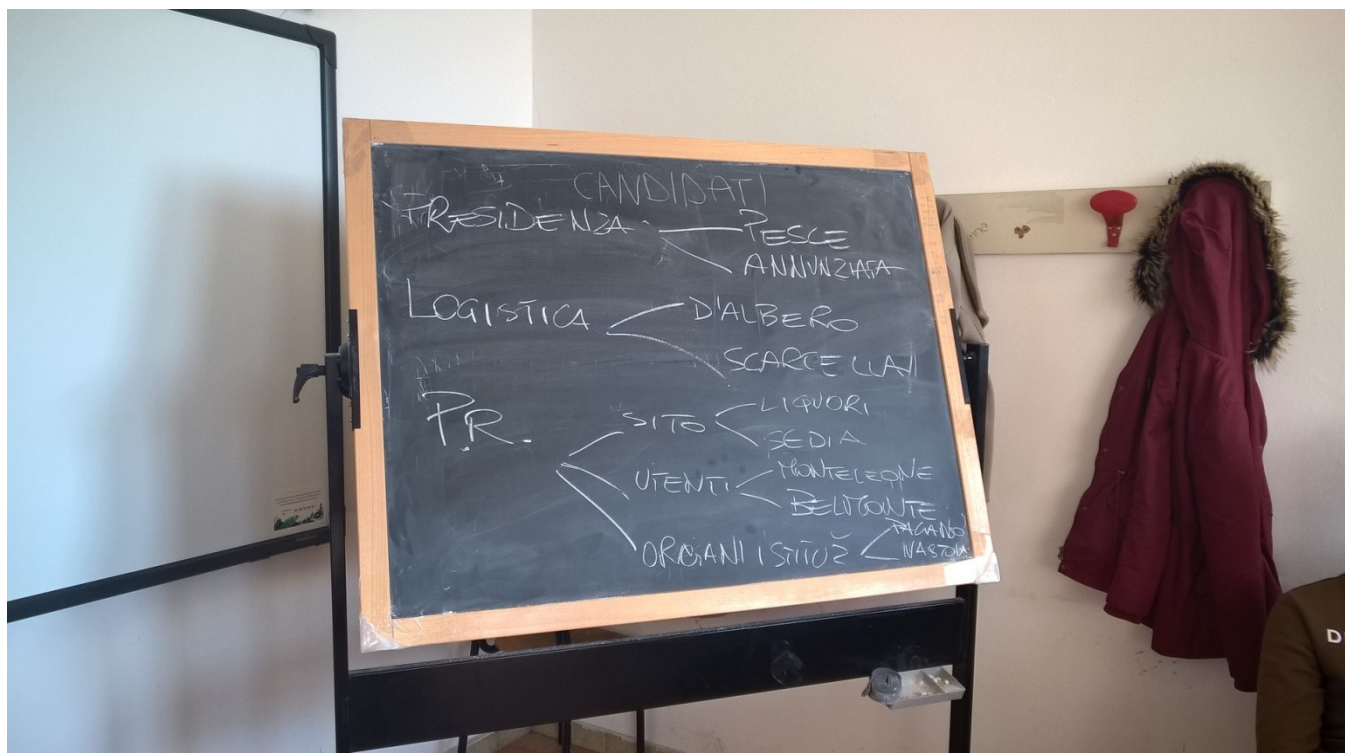 CANDIDATI
PRESIDENZA PESCE
ANNUNZIATA
LOGISTICA D'ALBERO
SCARCELLAI
P.R. SITO LIQUORI
SEDIA
UTENTI MONTELEONE
BELMONTE
ORGANI ISTITUZ PAGANO